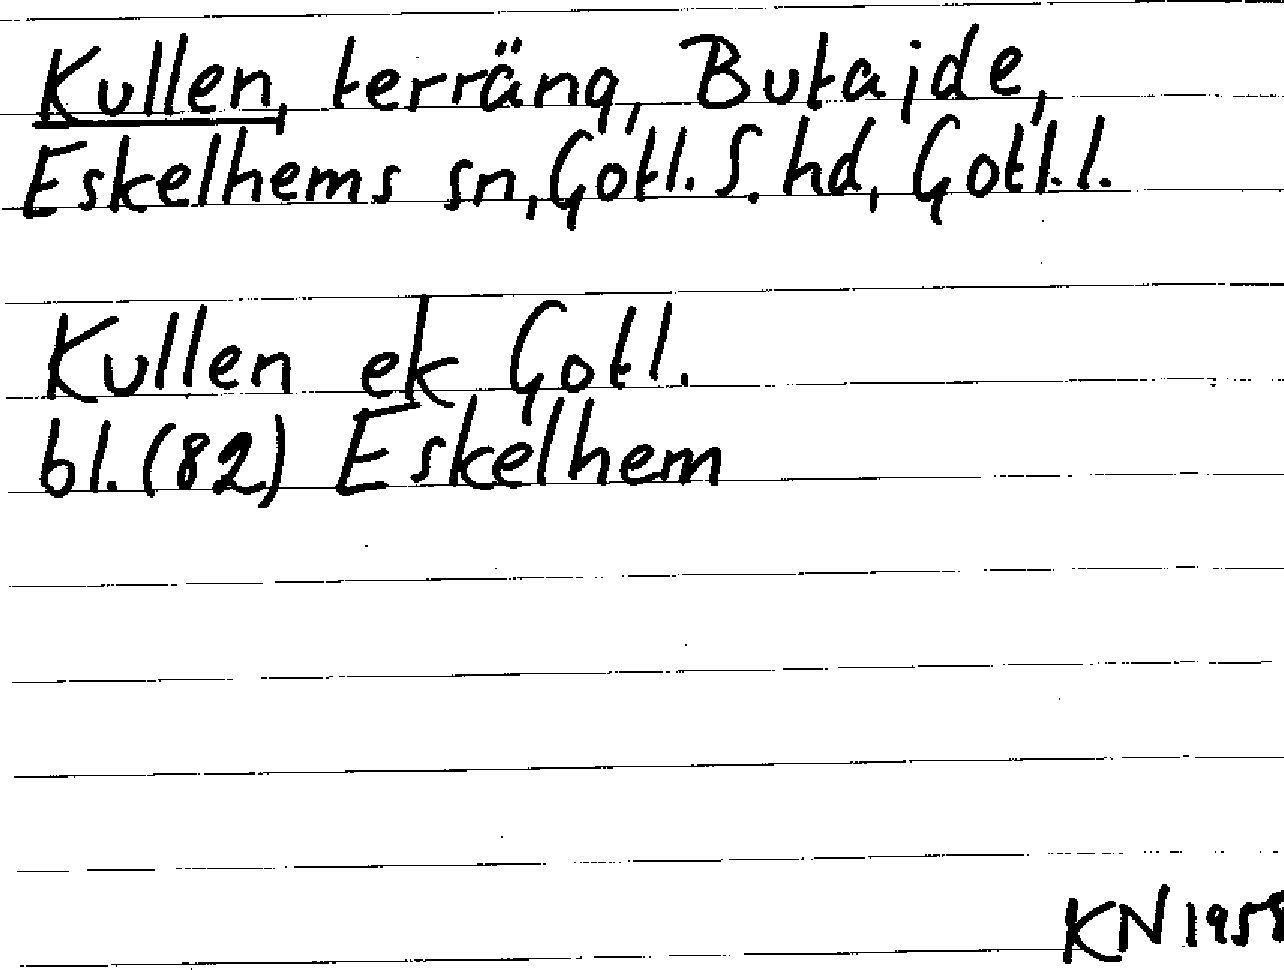 Kullen, terräng, Butajde,
Eskelhems sn, Gotl. S. hd, Gotl. l.
Kullen ek Gotl.
bl. (82) Eskelhem
KN